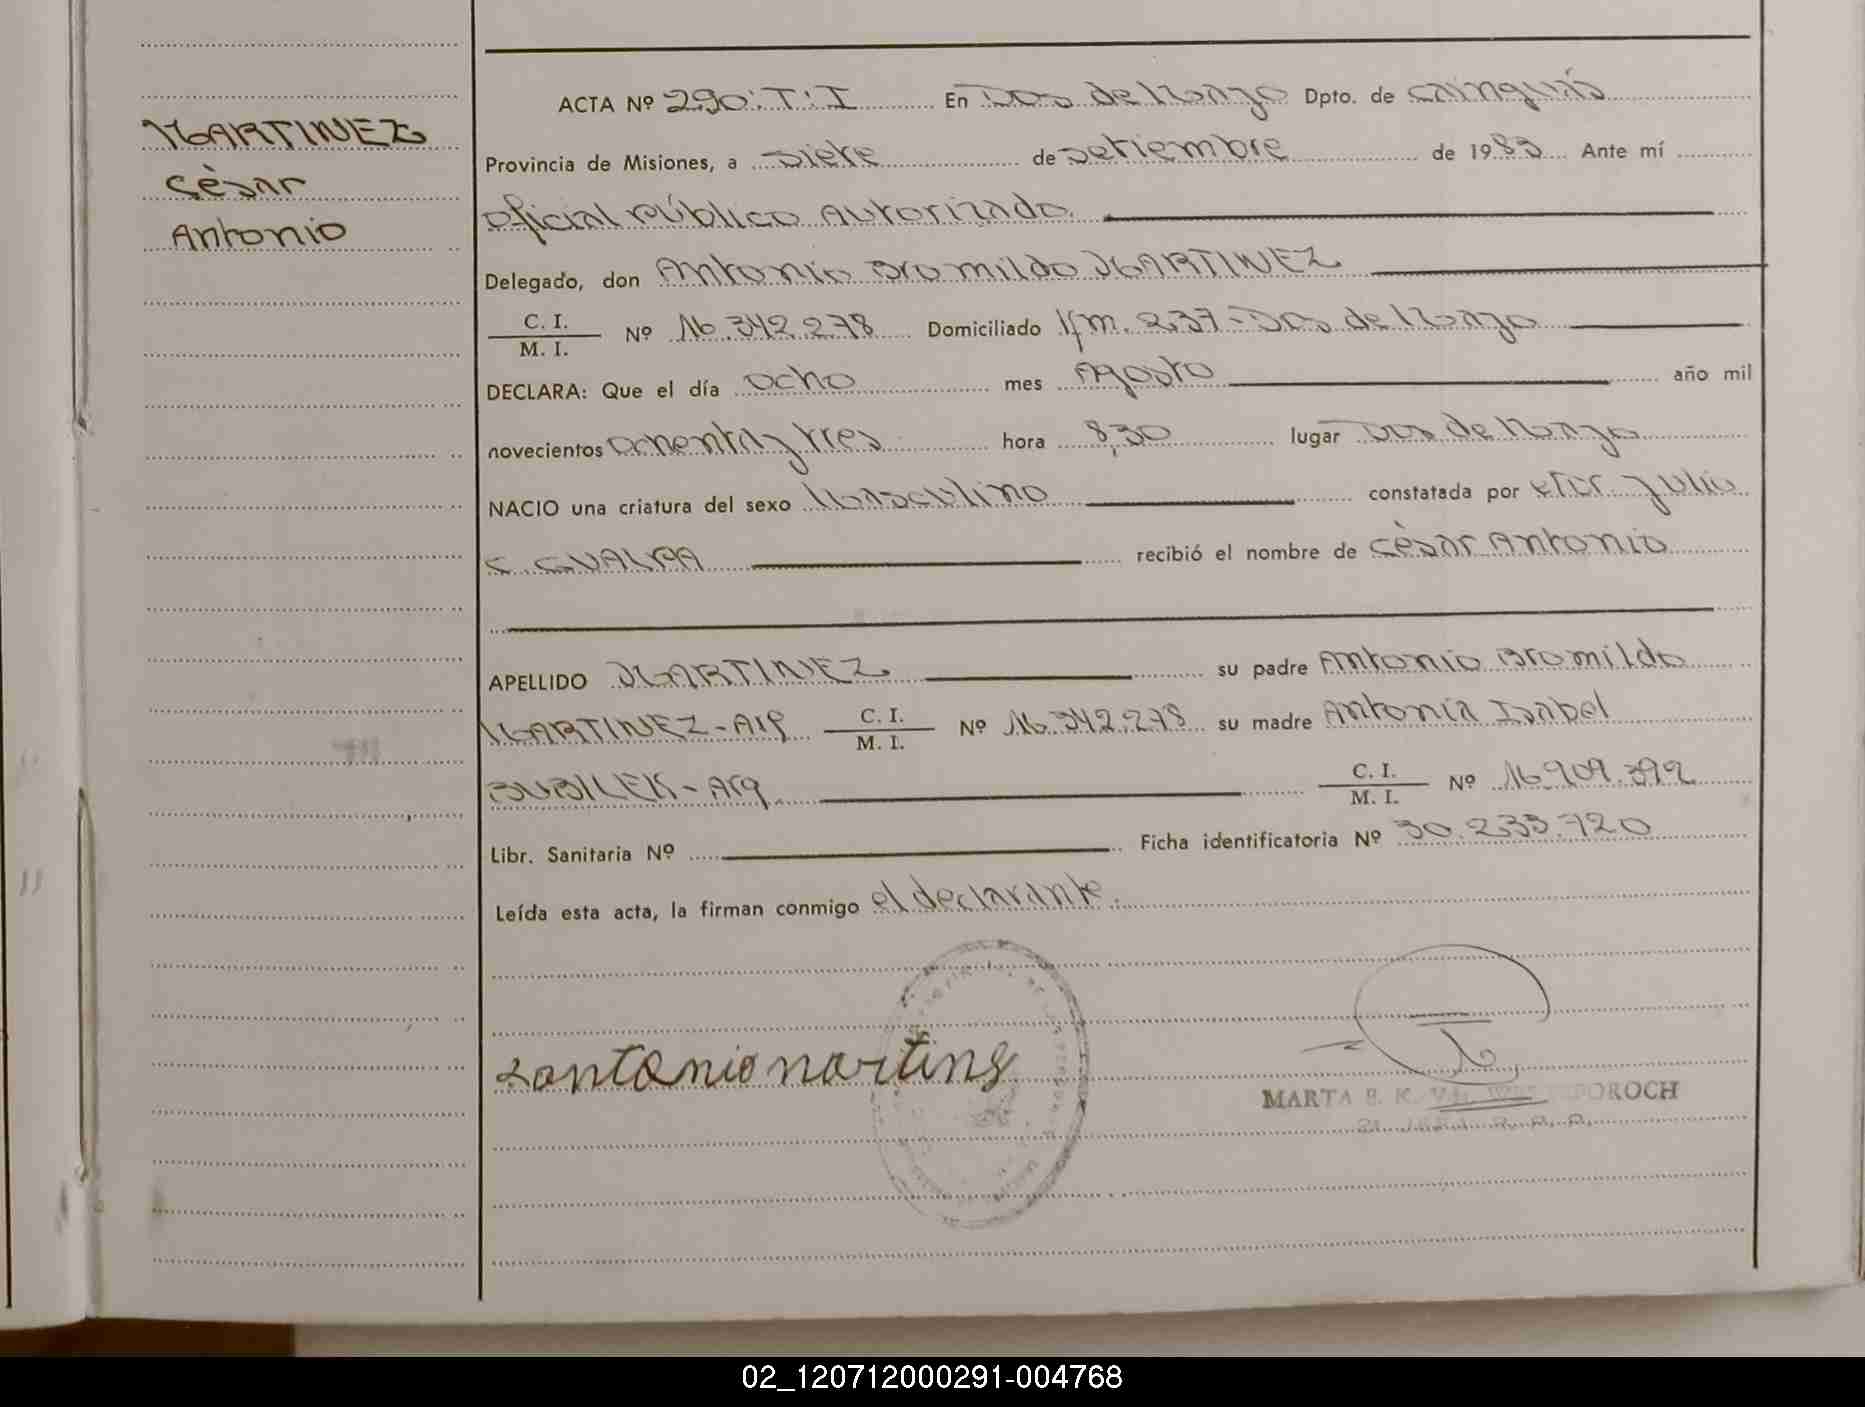 MARTINEZ
Cèsar
Antonio
ACTA Nº 290:T:I En Dos de Mayo Dpto. de Cainguás
Provincia de Misiones, a siete de setiembre de 1983 Ante mí
Oficial Público Autorizado.
Delegado, don Antonio Bromildo MARTINEZ
C. I. / M. I. Nº 16.342.278 Domiciliado Km. 237-Dos de Mayo
DECLARA: Que el día ocho mes Agosto año mil
novecientos ochenta y tres hora 8,30 lugar Dos de Mayo
NACIO una criatura del sexo Masculino constatada por Julio
C. GUALPA recibió el nombre de Cèsar Antonio
APELLIDO MARTINEZ su padre Antonio Bromildo
MARTINEZ-Arg C. I. / M. I. Nº 16.342.278 su madre Antonia Isabel
BUBILEK-Arg. C. I. / M. I. Nº 16.909.392
Libr. Sanitaria Nº Ficha identificatoria Nº 30.233.720
Leída esta acta, la firman conmigo el declarante.
MARTA
02_120712000291-004768